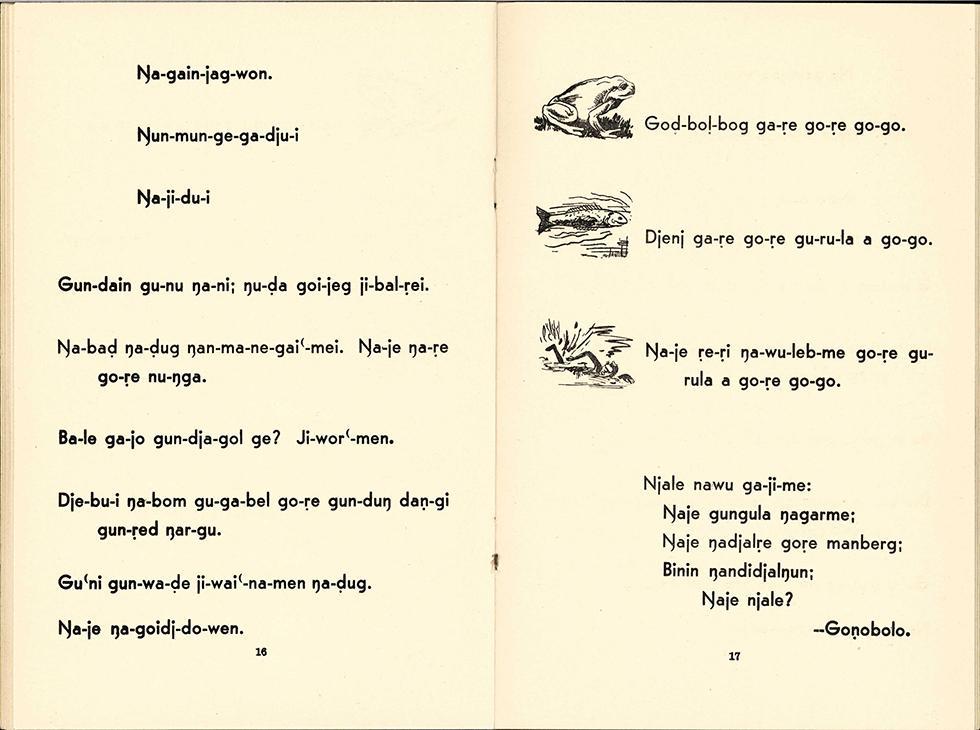 Ŋa-gain-jag-won.
Ŋun-mun-ge-ga-dju-i
Ŋa-ji-du-i
Gun-dain gu-nu ŋa-ni; ŋu-ḍa goi-jeg ji-bal-ṛei.
Ŋa-baḍ ŋa-ḍug ŋan-ma-ne-gaiʿ-mei. Ŋa-je ŋa-ṛe
go-ṛe nu-ŋga.
Ba-le ga-jo gun-dja-gol ge? Ji-worʿ-men.
Dje-bu-i ŋa-bom gu-ga-bel go-ṛe gun-duŋ daṇ-gi
gun-ṛed ŋar-gu.
Guʿni gun-wa-ḍe ji-waiʿ-na-men ŋa-ḍug.
Ŋa-je ŋa-goidj-do-wen.
16
Goḍ-boḷ-bog ga-ṛe go-ṛe go-go.
Djenj ga-ṛe go-ṛe gu-ru-la a go-go.
Ŋa-je ṛe-ri ŋa-wu-leb-me go-ṛe gu-
rula a go-ṛe go-go.
Njale nawu ga-ji-me:
Ŋaje gungula ŋagarme;
Ŋaje ŋadjalṛe goṛe manberg;
Binin ŋandidjalŋun;
Ŋaje njale?
--Goṇobolo.
17